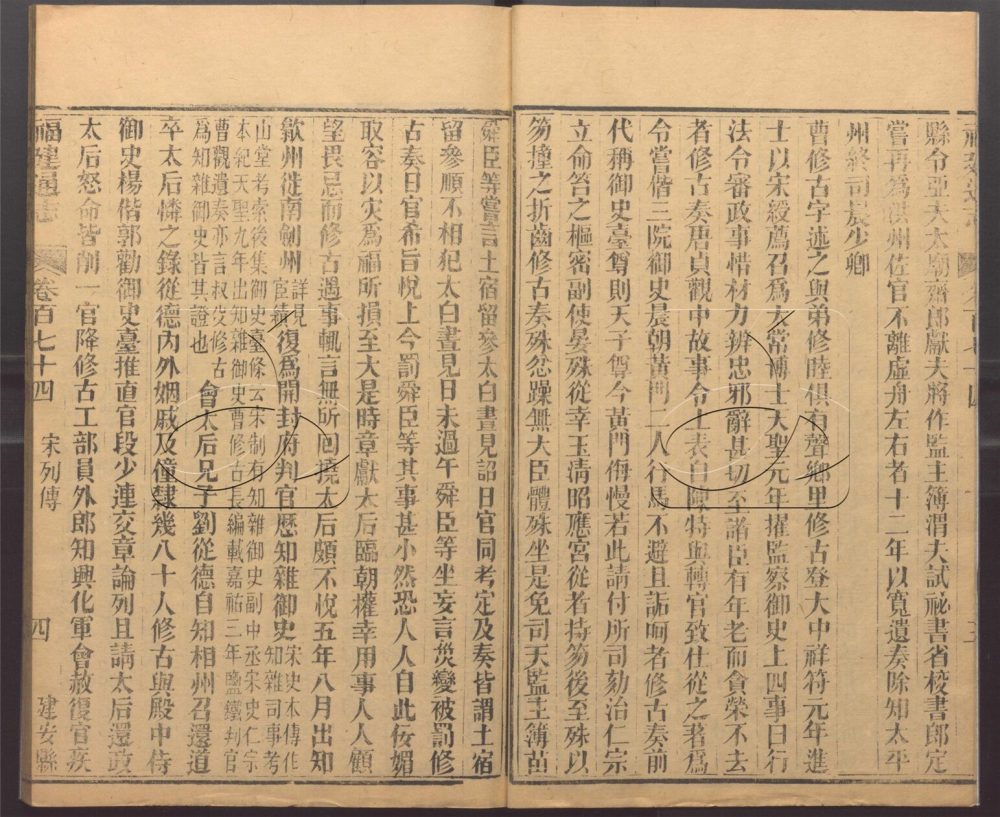 縣令亞夫太廟齋郎獻夫將作監主簿渭夫試祕書省校書郎定
嘗再為洪州佐官不離虛舟左右者十二年以寬遺奏除知太平
州終司晨少卿
曹修古字述之與弟修睦俱有聲鄉里修古登大中祥符元年進
士以宋綬薦召為太常博士天聖元年擢監察御史上四事曰行
法令審政事惜材力辨忠邪辭甚切至諸臣有年老而貪榮不去
者修古奏唐貞觀中故事令上表自陳特與轉官致仕從之著為
令嘗偕三院御史晨朝黃門二人行馬不避且詬呵者修古奏前
代稱御史臺尊則天子尊今黃門侮慢若此請付所司劾治仁宗
立命笞之樞密副使晏殊從幸玉清昭應宮從者持笏後至殊以
笏撞之折齒修古奏殊忿躁無大臣體殊坐是免司天監主簿苗
舜臣等嘗言土宿留參太白晝見詔日官同考定及奏皆謂土宿
留參順不相犯太白晝見日未過午舜臣等坐妄言災變被罰修
古奏日官希旨悅上今罰舜臣等其事甚小然恐人人自此佞媚
取容以灾為福所損至大是時章獻太后臨朝權幸用事人人顧
望畏忌而修古遇事輒言無所回撓太后頗不悅五年八月出知
歙州徙南劍州詳見宦績復為開封府判官歷知雜御史宋史本傳作知雜司事考
山堂考索後集御史臺條云宋制有知雜御史副中丞宋史仁宗
本紀天聖九年出知雜御史曹修古長編載嘉祐三年鹽鐵判官
曹觀遺奏亦言叔父修古
為知雜御史皆其證也會太后兄子劉從德自知相州召還道
卒太后憐之錄從德內外姻戚及僮隸幾八十人修古與殿中侍
御史楊偕郭勸御史臺推直官段少連交章論列且請太后還政
太后怒命皆削一官降修古工部員外郎知興化軍會赦復官疾
福建通志 卷百七十四 宋列傳 四 建安縣